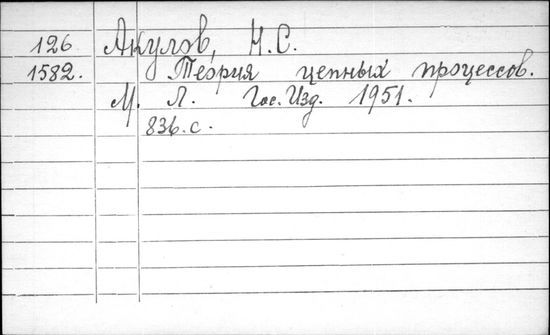 126 Акулов, Н.С.
1582. Теория цепных процессов.
М. Л. Гос. Изд. 1951.
836. с.